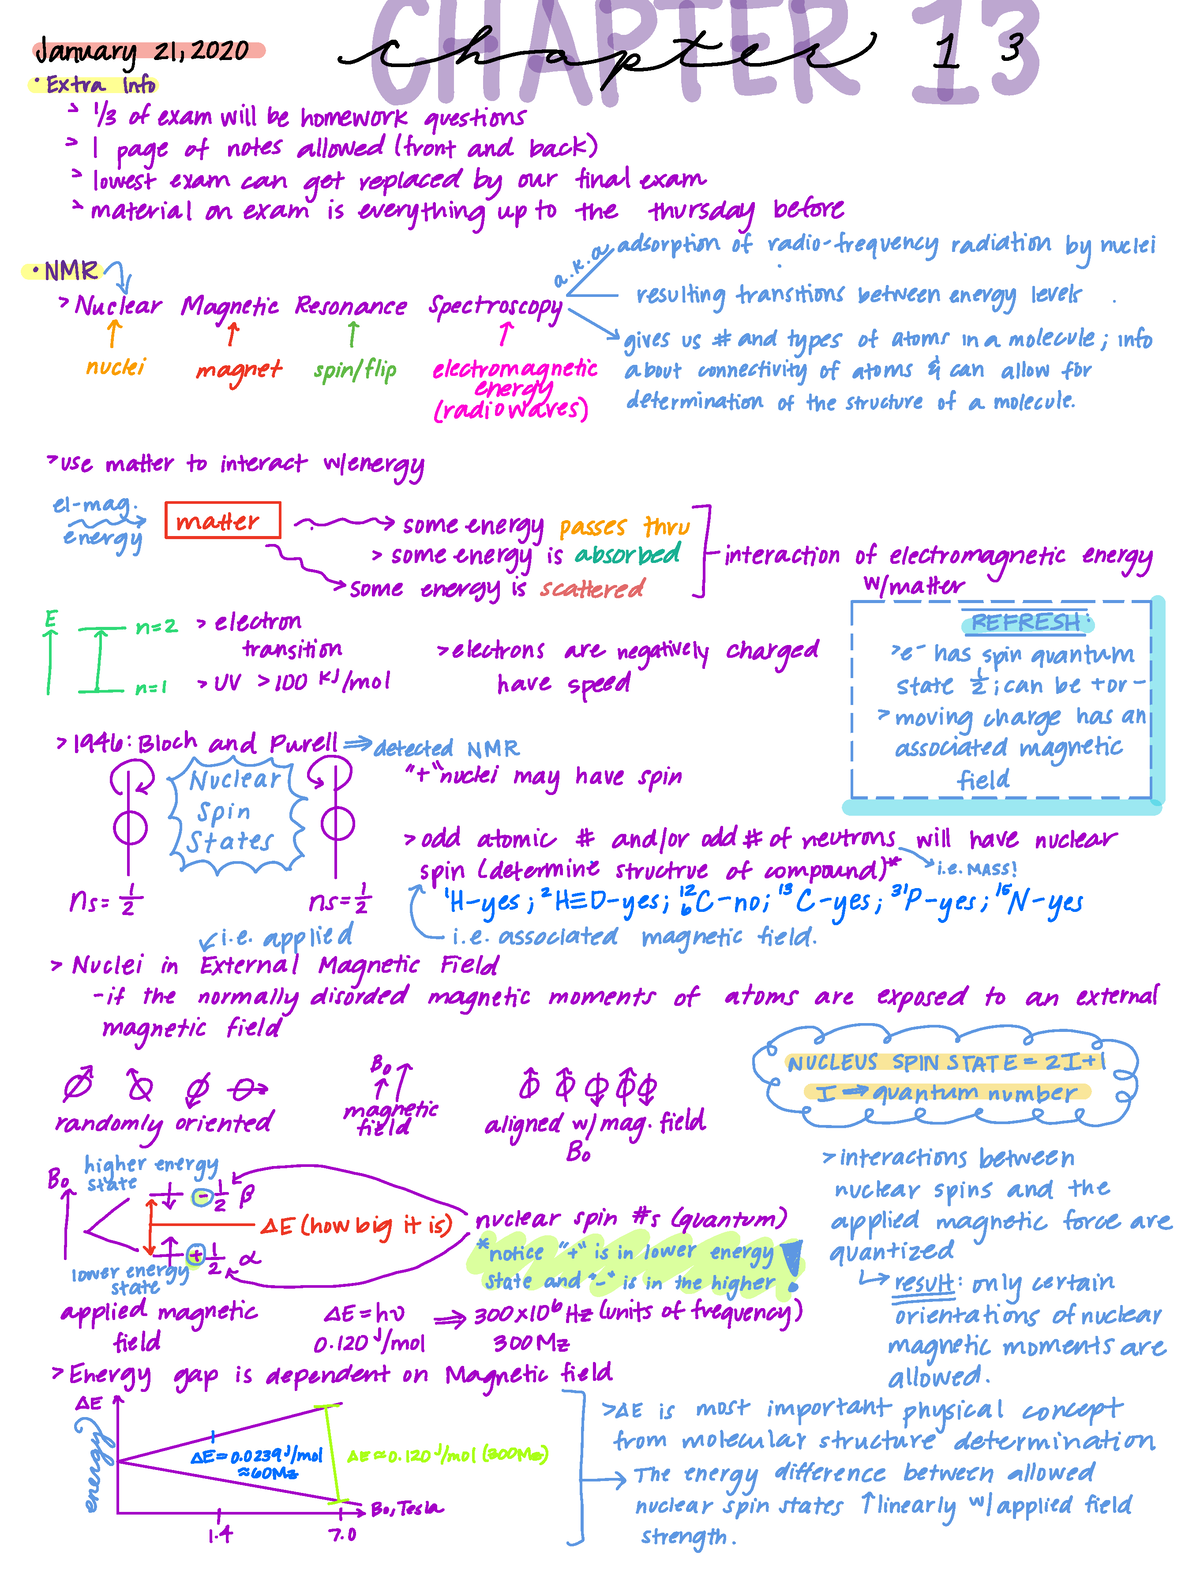 CHAPTER 13
chapter 13
January 21, 2020
• Extra info
> 1/3 of exam will be homework questions
> 1 page of notes allowed (front and back)
> lowest exam can get replaced by our final exam
> material on exam is everything up to the thursday before
• NMR
> Nuclear Magnetic Resonance Spectroscopy
nuclei
magnet
spin/flip
electromagnetic
energy
(radiowaves)
a.k.a
adsorption of radio-frequency radiation by nuclei
resulting transitions between energy levels.
gives us # and types of atoms in a molecule; info
about connectivity of atoms & can allow for
determination of the structure of a molecule.
> use matter to interact w/energy
el-mag.
energy
matter
some energy passes thru
> some energy is absorbed
some energy is scattered
interaction of electromagnetic energy
w/matter
E
n=2
n=1
> electron
transition
> UV >100 kJ/mol
> electrons are negatively charged
have speed
REFRESH:
> e⁻ has spin quantum
state 1/2; can be + or -
> moving charge has an
associated magnetic
field
> 1946: Bloch and Purell ⇒ detected NMR
Nuclear
Spin
States
ns = 1/2
ns = 1/2
"+" nuclei may have spin
> odd atomic # and/or odd # of neutrons will have nuclear
spin (determine structrue of compound)*
i.e. MASS!
¹H-yes; ²H≡D-yes; ¹²₆C-no; ¹³C-yes; ³¹P-yes; ¹⁵N-yes
i.e. associated magnetic field.
i.e. applied
> Nuclei in External Magnetic Field
- if the normally disorded magnetic moments of atoms are exposed to an external
magnetic field
randomly oriented
B₀
magnetic
field
aligned w/ mag. field
B₀
NUCLEUS SPIN STATE = 2I+1
I → quantum number
> interactions between
nuclear spins and the
applied magnetic force are
quantized
result: only certain
orientations of nuclear
magnetic moments are
allowed.
B₀
higher energy
state
- 1/2 β
ΔE (how big it is)
+ 1/2 α
lower energy
state
applied magnetic
field
nuclear spin #s (quantum)
*notice "+" is in lower energy
state and "-" is in the higher!
ΔE = hυ ⇒ 300×10⁶ Hz (units of frequency)
0.120 J/mol 300 Mz
> Energy gap is dependent on Magnetic field
ΔE
energy
ΔE = 0.0239 J/mol
≈60Mz
ΔE ≈ 0.120 J/mol (300Mz)
B₀, Tesla
1.4
7.0
> ΔE is most important physical concept
from molecular structure determination
The energy difference between allowed
nuclear spin states ↑ linearly w/ applied field
strength.